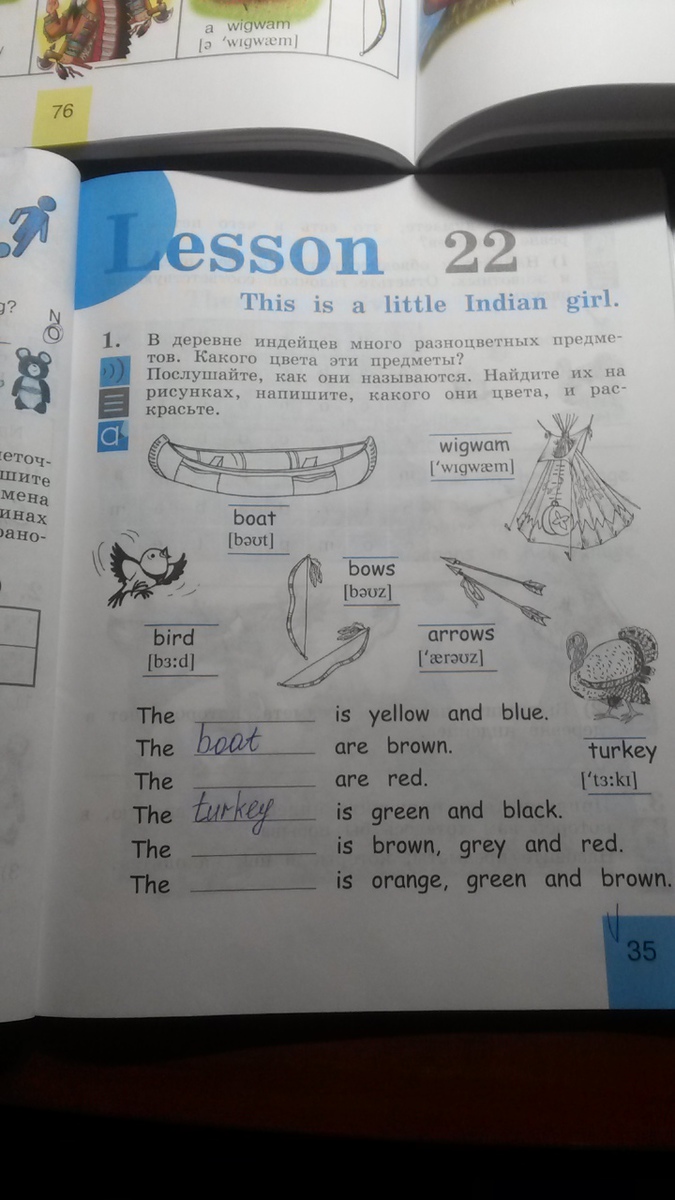 a wigwam
[ə 'wıgwæm]
76
Lesson 22
This is a little Indian girl.
g?
N
O
1. В деревне индейцев много разноцветных предме-
тов. Какого цвета эти предметы?
Послушайте, как они называются. Найдите их на
рисунках, напишите, какого они цвета, и рас-
красьте.
a
еточ-
шите
мена
инах
рано-
wigwam
['wıgwæm]
boat
[bəʊt]
bows
[bəʊz]
bird
[bɜ:d]
arrows
['ærəʊz]
turkey
['tɜ:kı]
The ______ is yellow and blue.
The boat are brown.
The ______ are red.
The turkey is green and black.
The ______ is brown, grey and red.
The ______ is orange, green and brown.
35